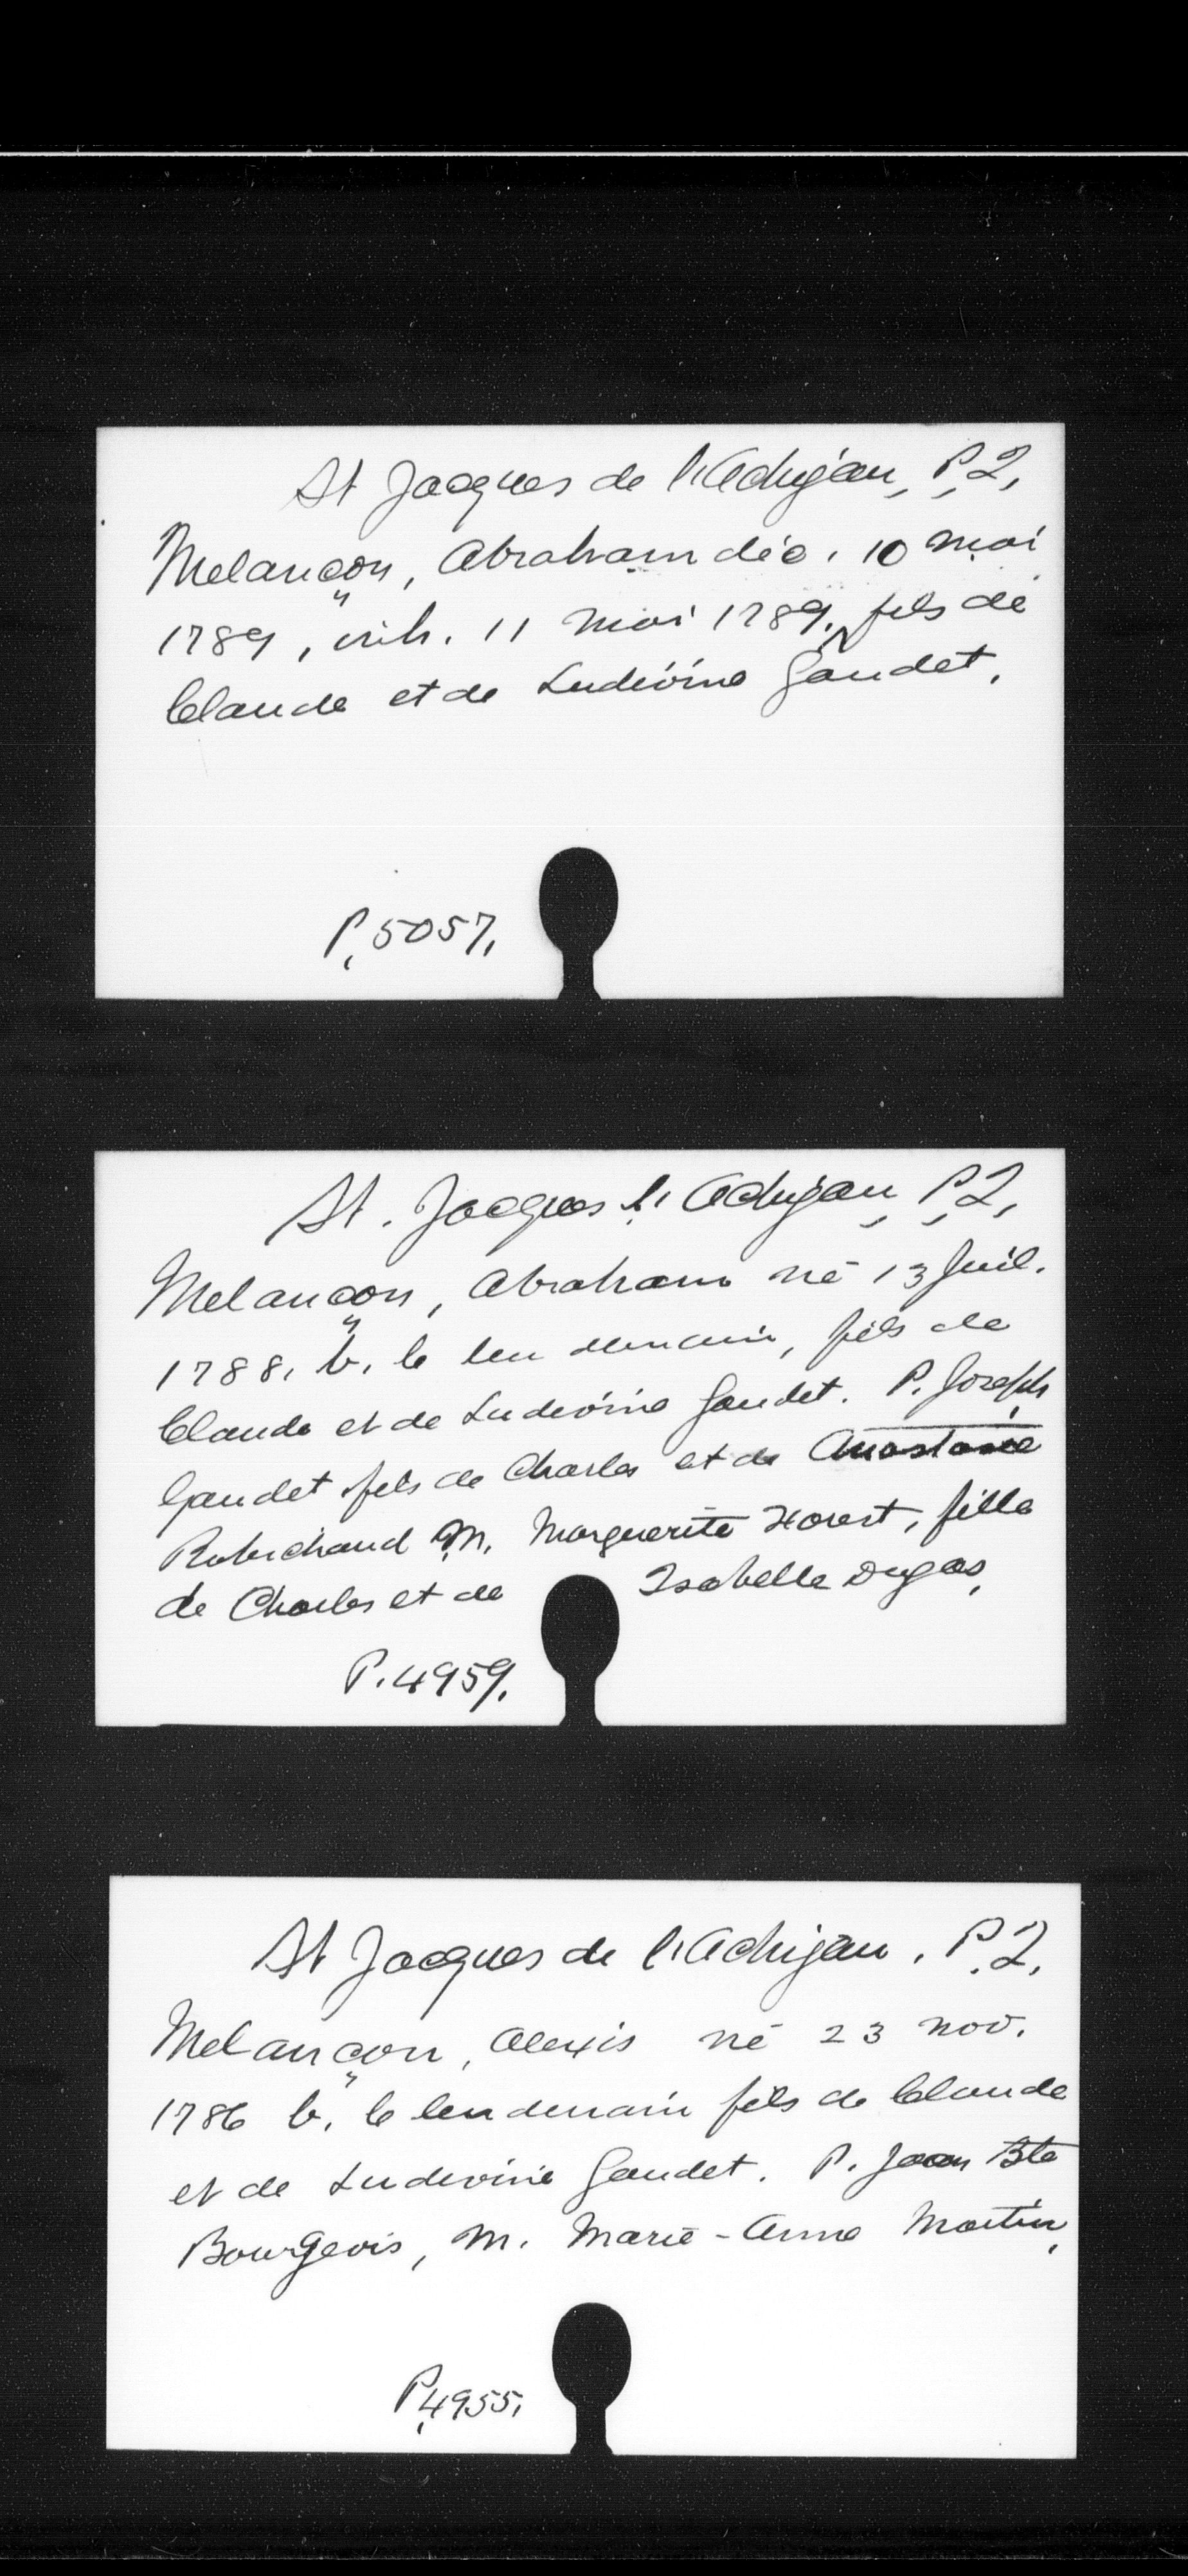 St Jacques de l'Achigan, P.2,
Melançon, Abraham déc. 10 mai
1789, inh. 11 mai 1789, fils de
Claude et de Ludivine Gaudet.
P. 5057.
St. Jacques l'Achigan, P.2,
Melançon, Abraham né 13 Juil.
1788. b. le lendemain, fils de
Claude et de Ludivine Gaudet. P. Joseph
Gaudet fils de Charles et de Anastasie
Robichaud M. Marguerite Forest, fille
de Charles et de Isabelle Dugas,
P. 4959.
St Jacques de l'Achigan. P.2,
Melançon, Alexis né 23 nov.
1786 b. le lendemain fils de Claude
et de Ludivine Gaudet. P. Jean Bte
Bourgeois, M. Marie-Anne Martin,
P. 4955.